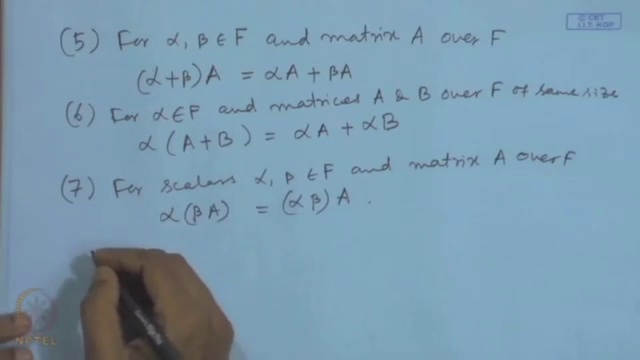 (5) For α, β ∈ F and matrix A over F
(α+β)A = αA + βA
(6) For α∈F and matrices A & B over F of same size
α(A+B) = αA + αB
(7) For scalars α, β ∈ F and matrix A over F
α(βA) = (αβ)A.
© CET
I.I.T. KGP
NPTEL